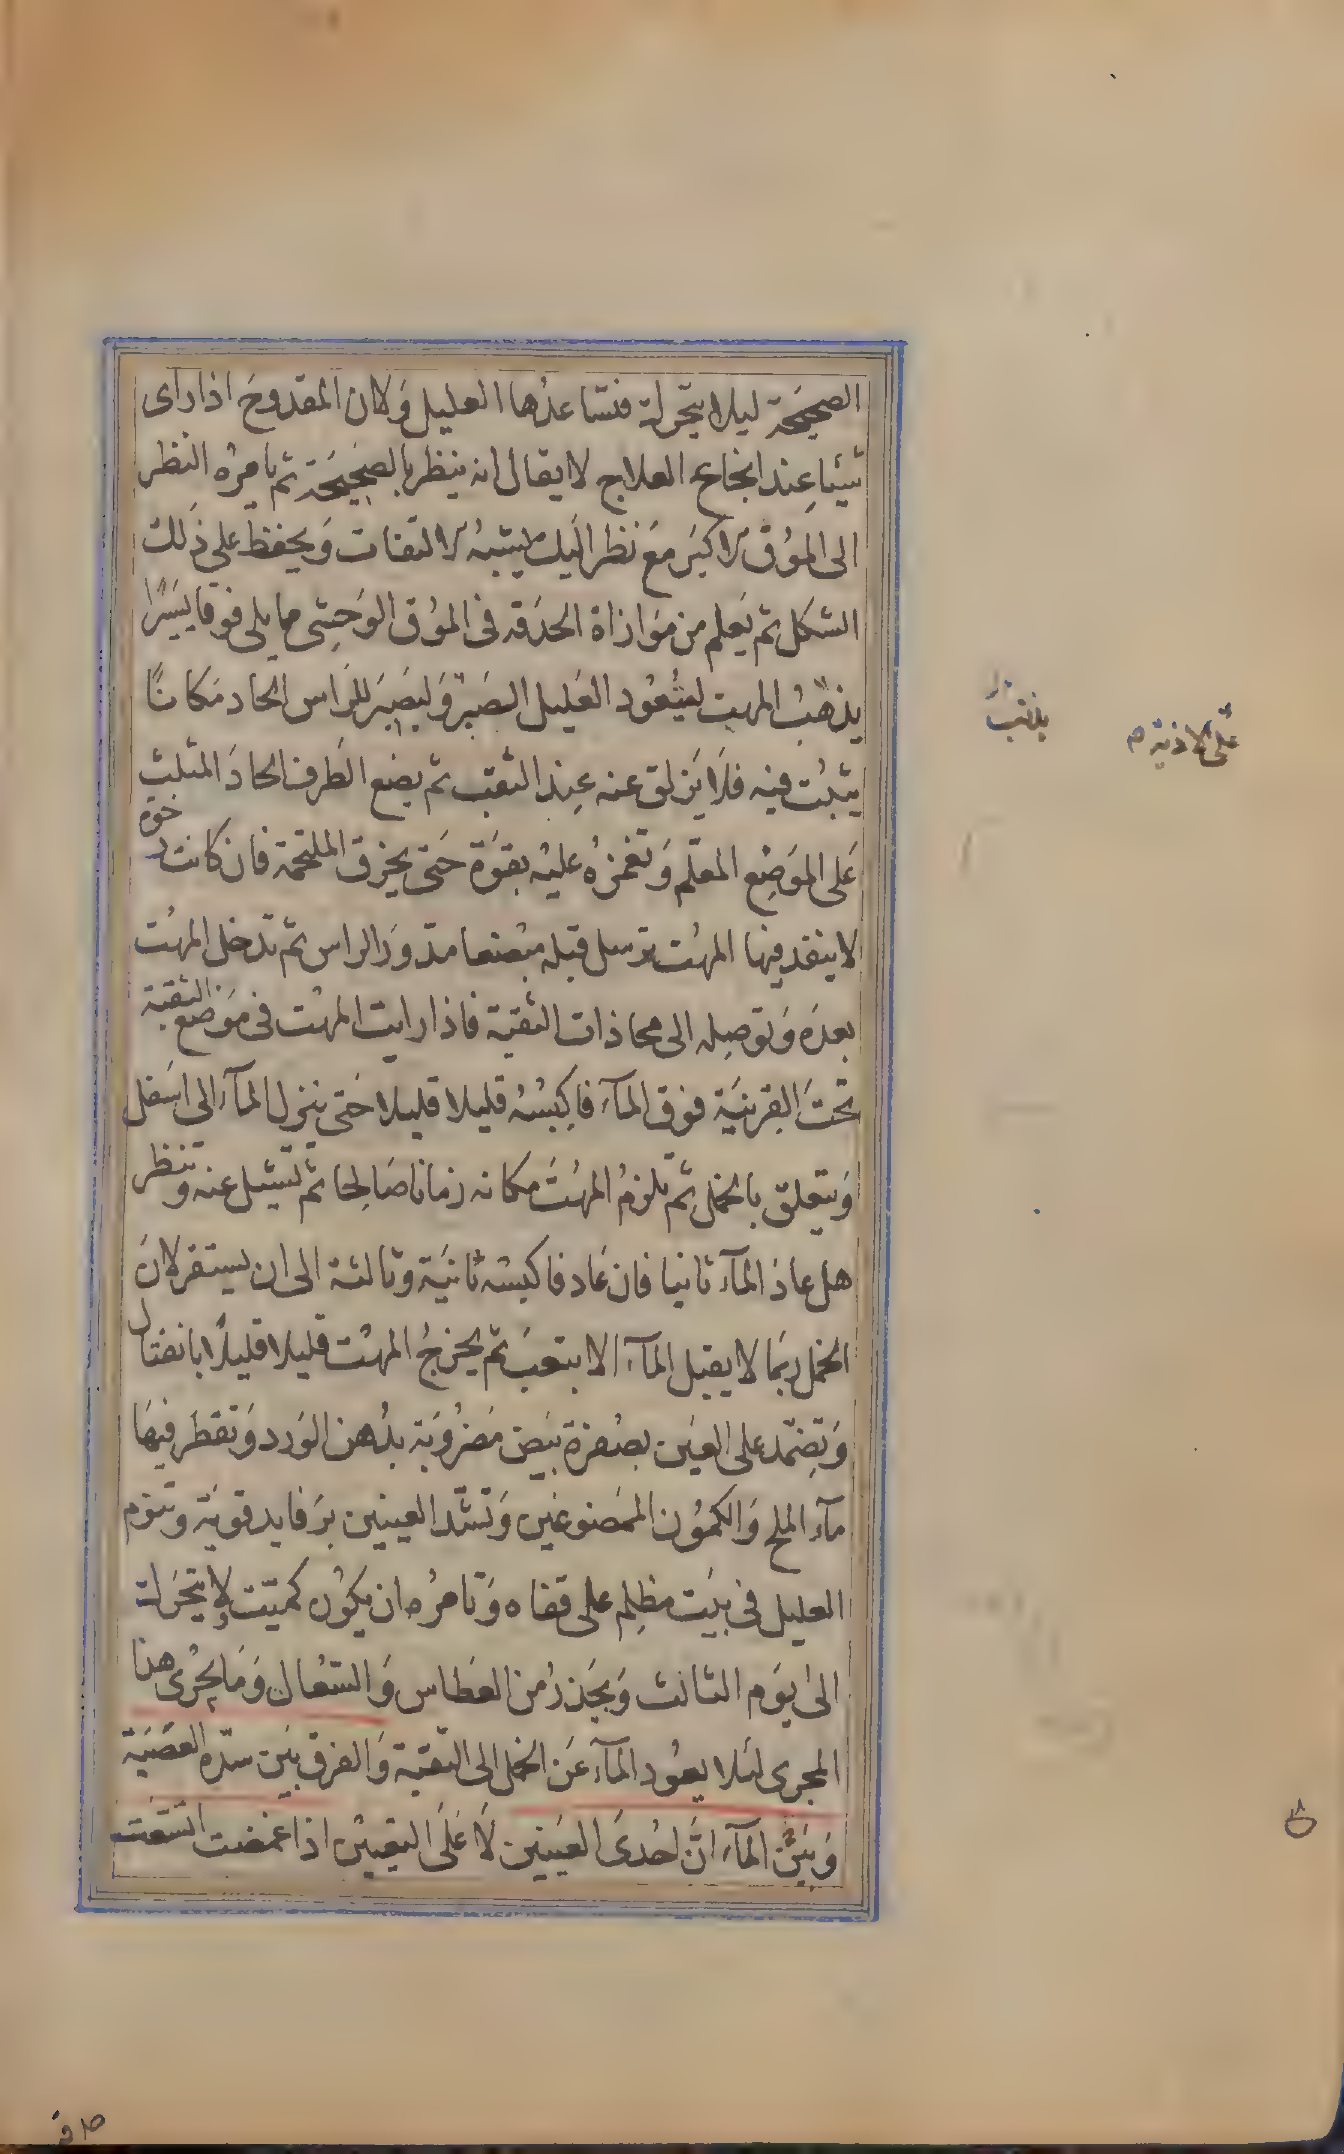 الصحيحة ليلا يتحرك فتساعدها العليل ولان المقدوح اذا راى
شيئا عند انجاع العلاج لا يقال انه ينظر بالصحيحة ثم يامره النظر
الى الموق الاكبر مع نظر اليك يشبه الالتفات ويحفظ على ذلك
الشكل ثم يعلم من موازاة الحدقه فى الموق الوحشى مما يلى فوقا يسيرا
بذنب المهت ليتعود العليل الصبر وليصير للراس الحاد مكانا
يثبت فيه فلا يزلق عنه عند الثقب ثم يضع الطرف الحاد المثلث
على الموضع المعلم وتغمزه عليه بقوة حتى يخرق الملتحمة فان كانت رخوة
لا ينفد فيها المهت ترسل قبله مبضعا مدور الراس ثم تدخل المهت
بعده وتوصله الى محاذات الثقبة فاذا رايت المهت فى موضع الثقبة
تحت القرنية فوق المآء فاكبسه قليلا قليلا حتى ينزل المآء الى اسفل
ويتعلق بالخمل ثم تلزم المهت مكانه زمانا صالحا ثم تشيل عنه وتنظر
هل عاد المآء ثانيا فان عاد فاكبسه ثانية وثالثة الى ان يستقر لان
الخمل ربما لا يقبل المآء الا بتعب ثم يخرج المهت قليلا قليلا بانفتال
وتضمد على العين بصفرة بيض مضروبة بدهن الورد وتقطر فيها
مآء الملح والكمون الممضوغين وتشد العينين برفايد قوية وتنوم
العليل فى بيت مظلم على قفاه وتامره ان يكون كميت لا يتحرك
الى يوم الثالث ويحذر من العطاس والسعال وما يجرى هذا
المجرى لئلا يعود المآء عن الخمل الى الثقبة والفرق بين سده العصبة
وبين المآء ان احدى العينين لا على التعيين اذا غمضت اتسعت
بذنب
على الاذية م